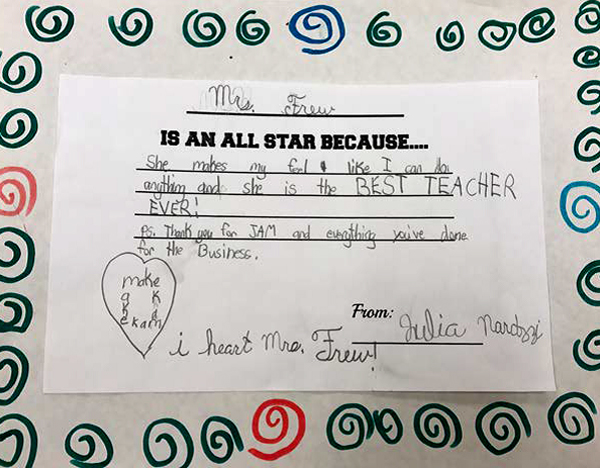 Mrs. Frew
IS AN ALL STAR BECAUSE....
She makes my feel like I can do
anything and she is the BEST TEACHER
EVER!
PS. Thank you for JAM and everything you've done
for the Business.
make
a k
k a
ekam
From: Julia Nardozzi
i heart Mrs. Frew!